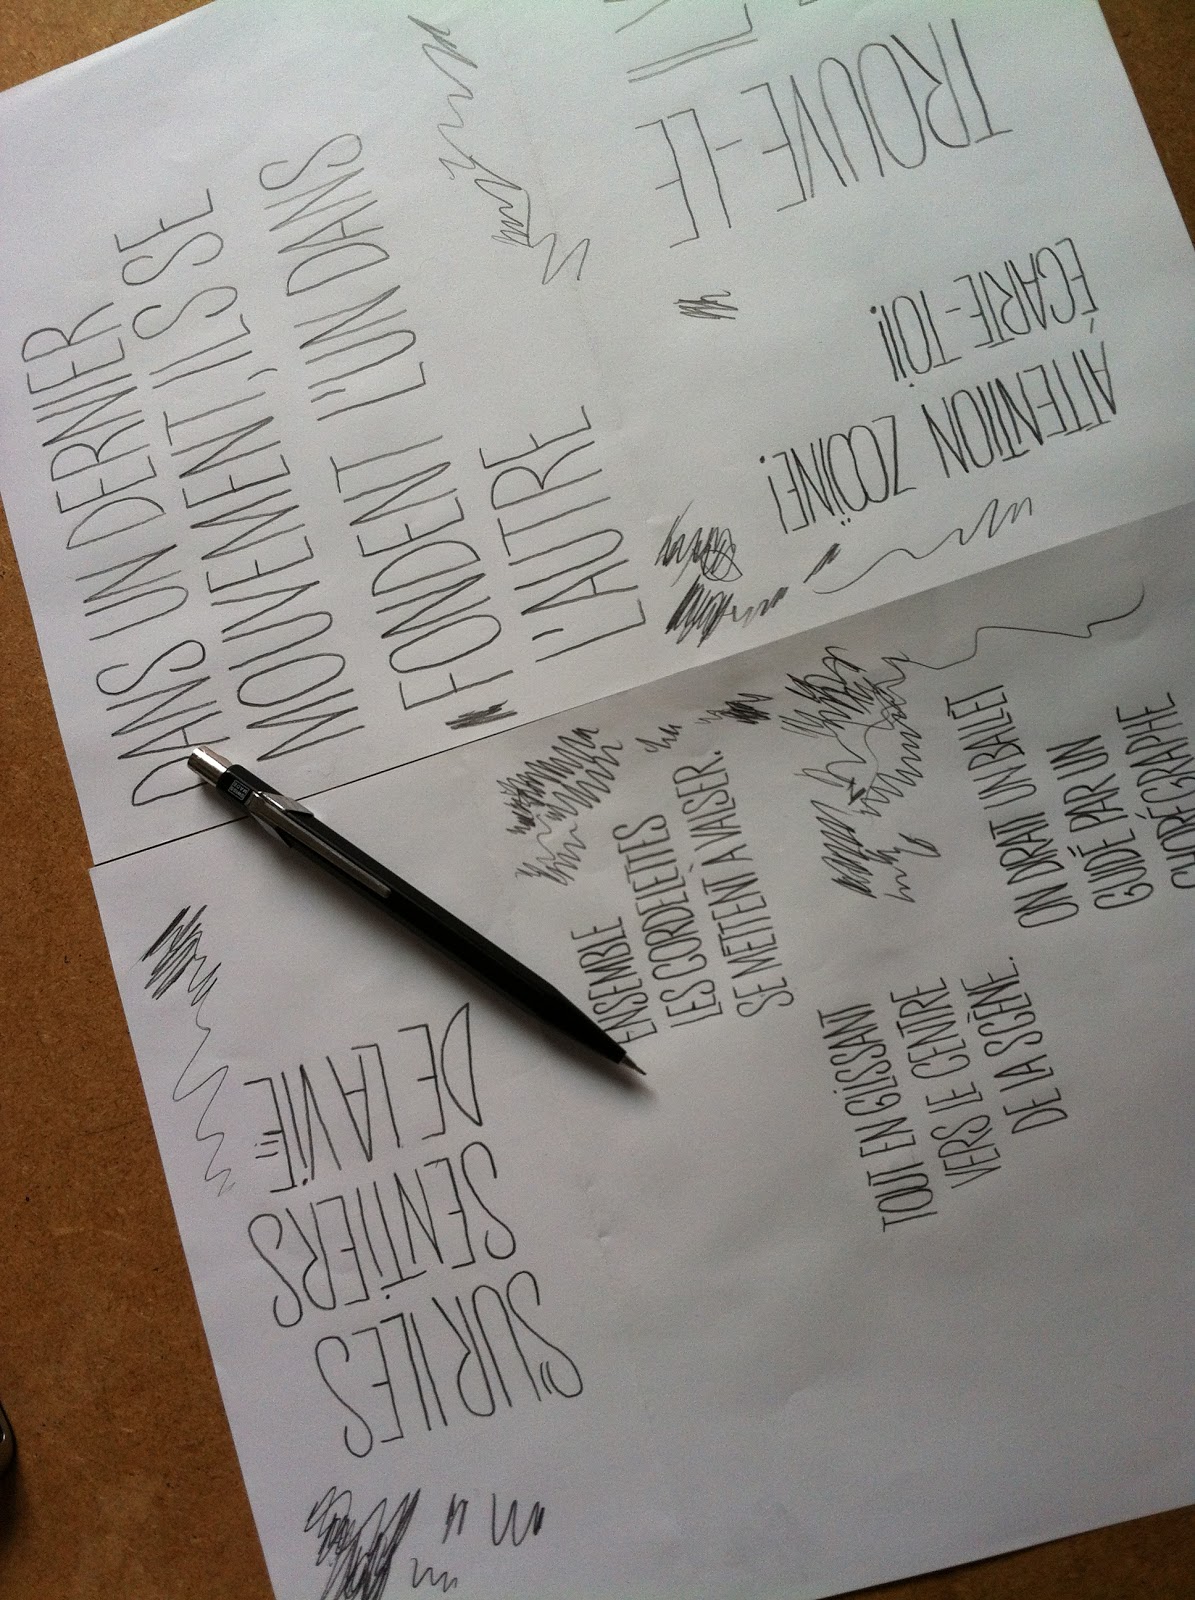 DANS UN DERNIER
MOUVEMENT, ILS SE
FONDENT L'UN DANS
L'AUTRE
TROUVE-LE
ATTENTION ZOÏNE!
ÉCARTE-TOI!
SUR LES
SENTIERS
DE LA VIE
ENSEMBLE
LES CORDELETTES
SE METTENT À VALSER.
TOUT EN GLISSANT
VERS LE CENTRE
DE LA SCÈNE.
ON DIRAIT UN BALLET
GUIDÉ PAR UN
CHORÉGRAPHE